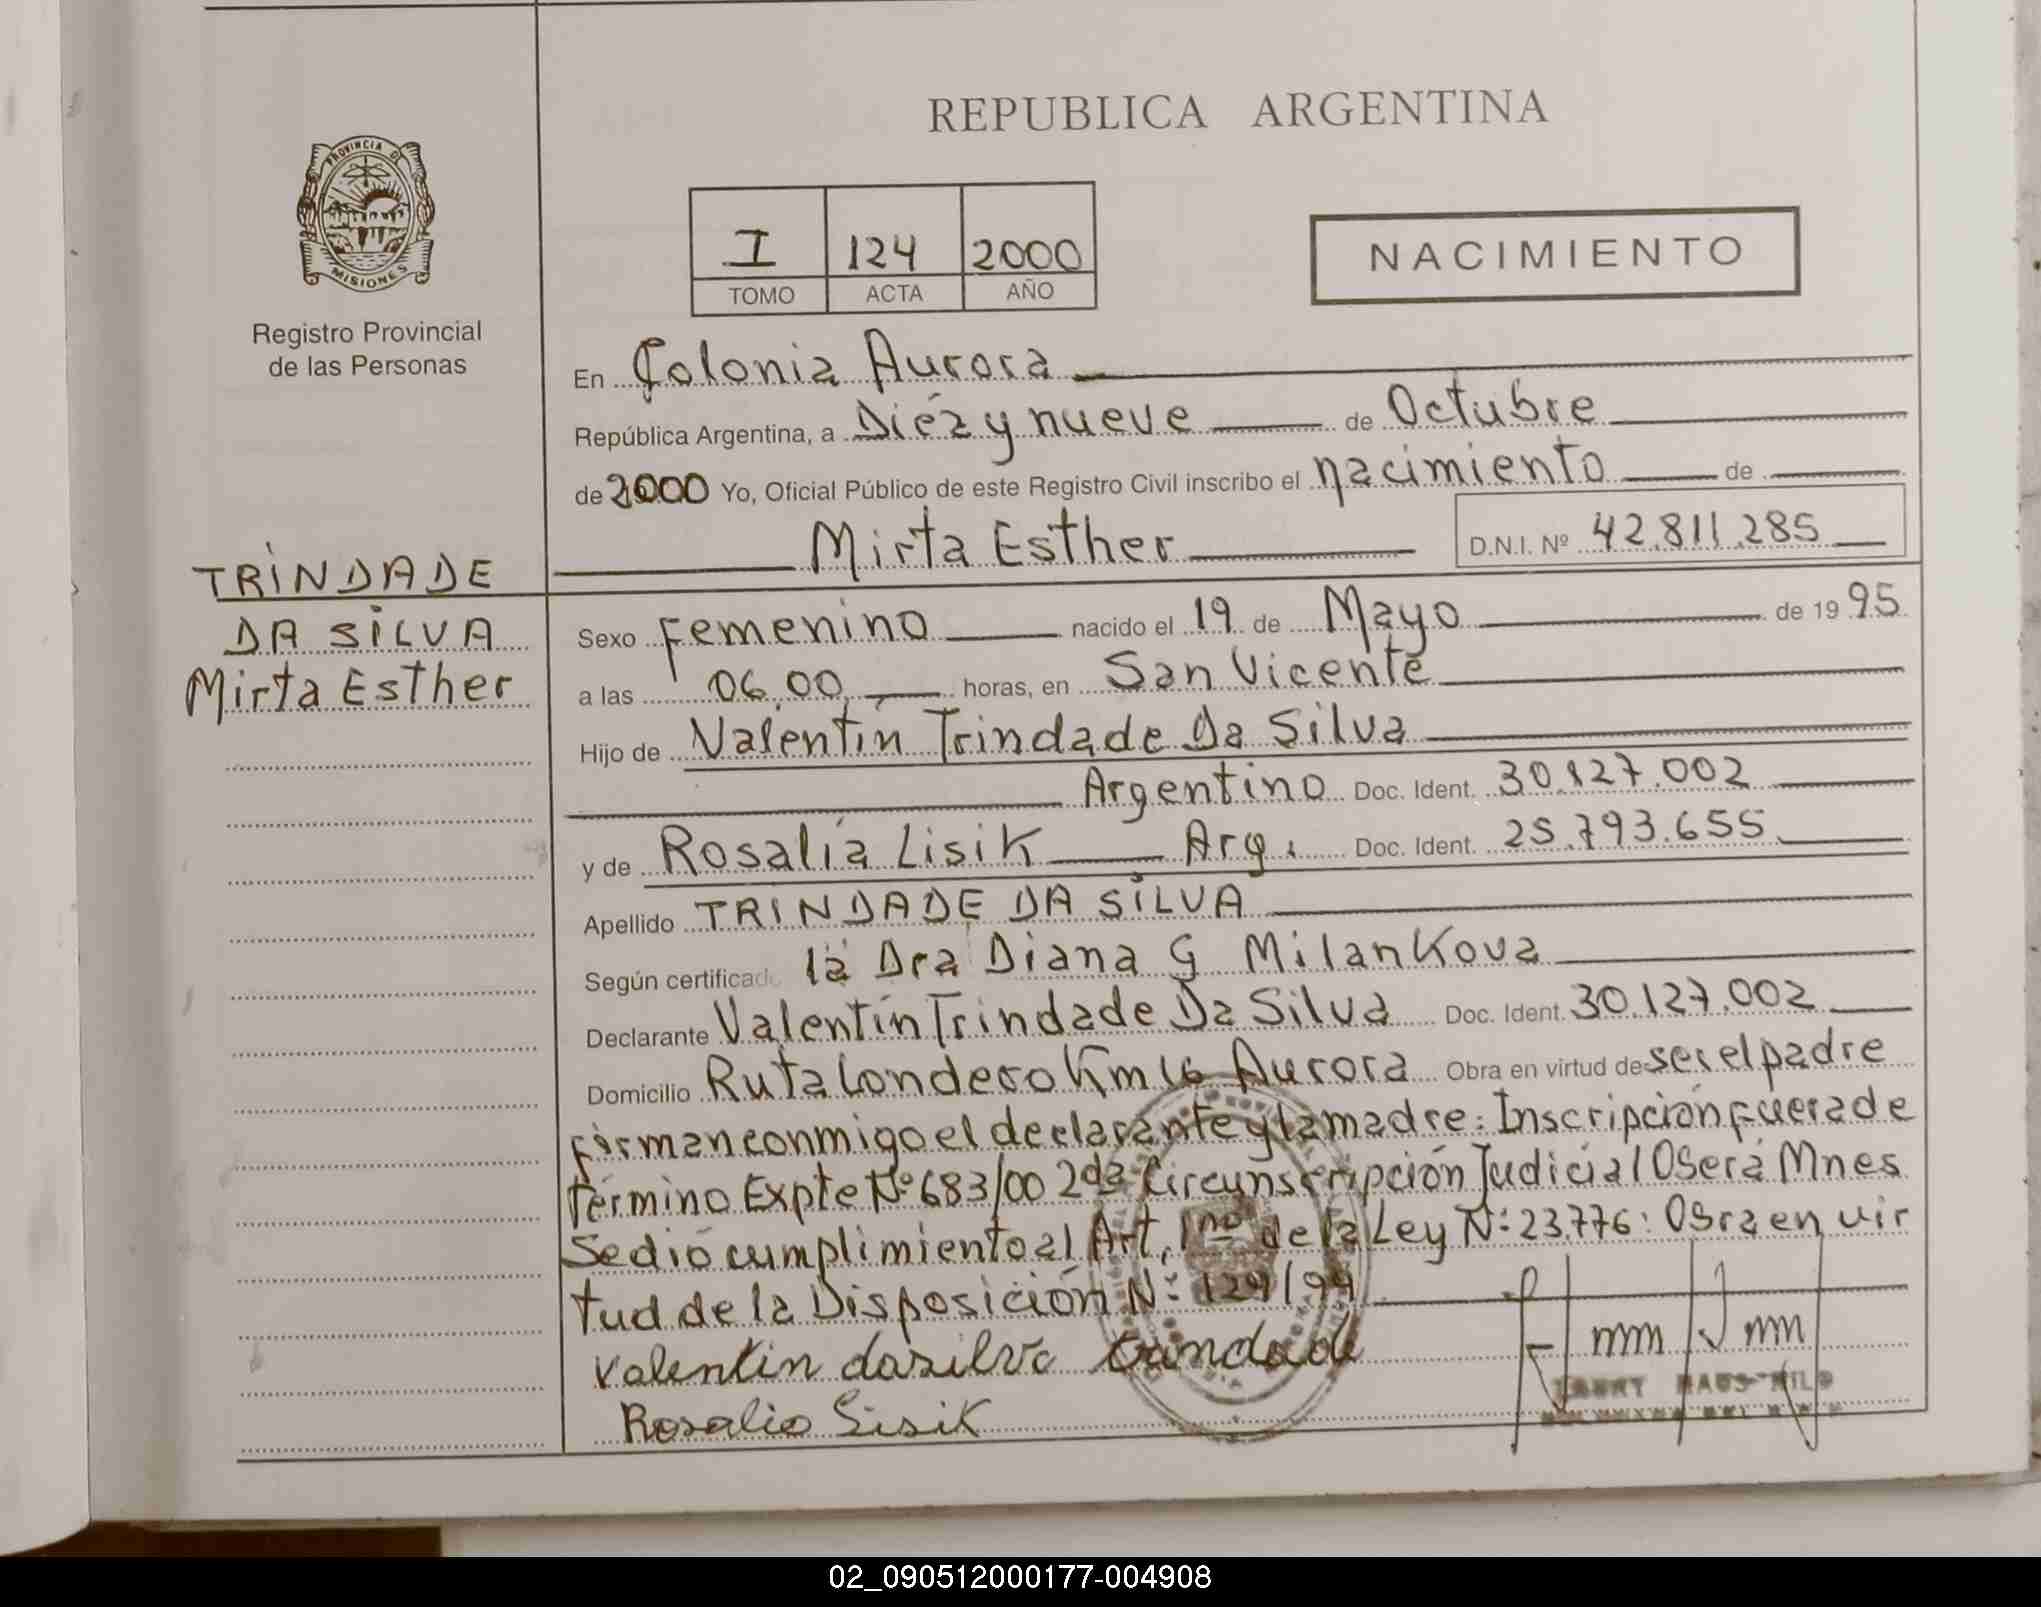 REPUBLICA ARGENTINA
PROVINCIA DE
MISIONES
Registro Provincial
de las Personas
I 124 2000
TOMO ACTA AÑO
NACIMIENTO
En Colonia Aurora
República Argentina, a Diéz y nueve de Octubre
de 2000 Yo, Oficial Público de este Registro Civil inscribo el nacimiento de
Mirta Esther D.N.I. Nº 42.811.285
TRINDADE
DA SILVA
Mirta Esther
Sexo Femenino nacido el 19 de Mayo de 1995
a las 06,00 horas, en San Vicente
Hijo de Valentín Trindade Da Silva
Argentino Doc. Ident. 30.127.002
y de Rosalía Lisik Arg. Doc. Ident. 25.793.655
Apellido TRINDADE DA SILVA
Según certificado la Dra Diana G Milankova
Declarante Valentín Trindade Da Silva Doc. Ident. 30.127.002
Domicilio Ruta Londero Km 16 Aurora Obra en virtud de ser el padre
firman conmigo el declarante y la madre: Inscripción fuera de
Término Expte Nº 683/00 2da Circunscripción Judicial Oberá Mnes
Se dió cumplimiento al Art. 1no de la Ley Nº: 23.776: Obra en vir
tud de la Disposición Nº: 129/99
Valentin dasilva trindade
Rosalia Lisik
02_090512000177-004908